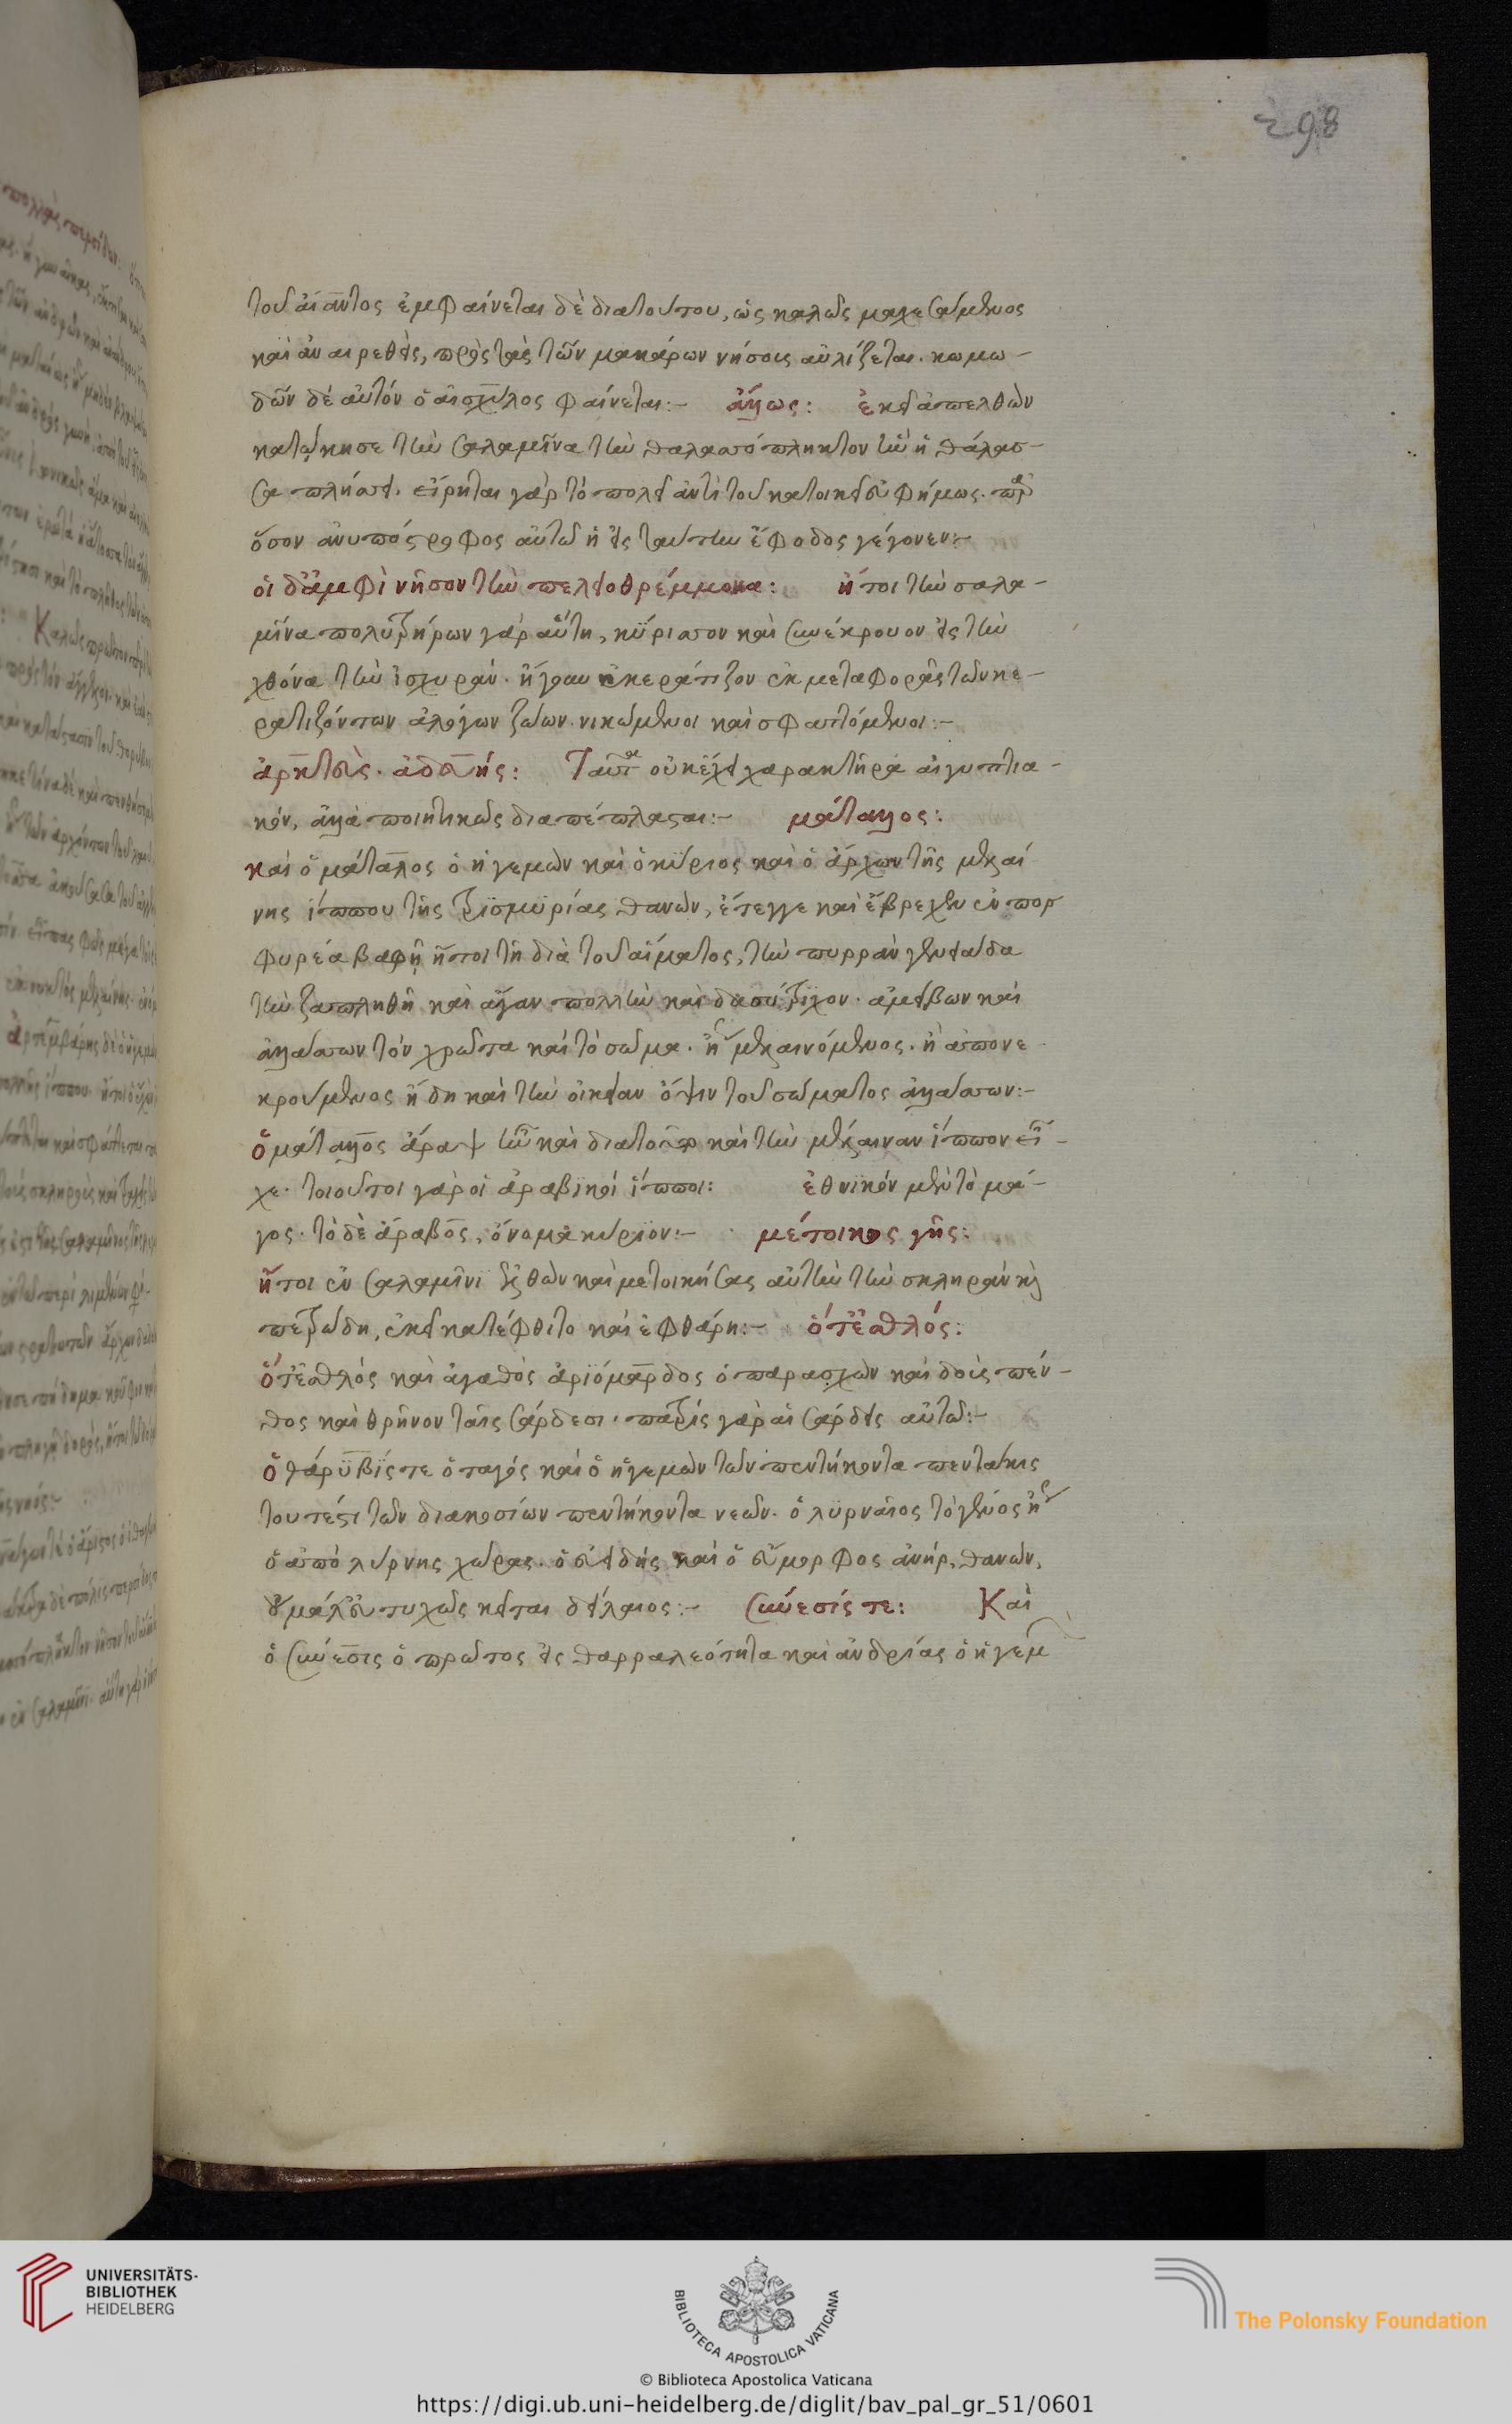 298
τοῦ αἴαντος ἐμφαίνεται δὲ διὰ τούτου, ὡς καλῶς μαχεσάμενος
καὶ ἀναιρεθεὶς, πρὸς τὰς τῶν μακάρων νήσοις αὐλίζεται. κωμω-
δῶν δὲ αὐτόν ὁ αἰσχύλος φαίνεται:- ἄλλως: ἐκεῖ ἀπελθὼν
κατῴκησε τὴν σαλαμῖνα τὴν θαλασσόπληκτον ἣν ἡ θάλασ-
σα πλήσσει. εἴρηται γὰρ τὸ πολεῖ ἀντὶ τοῦ κατοικεῖ εὐφήμως. παρ
ὅσον ἀνυπόστροφος αὐτῶ ἡ εἰς ταύτην ἔφοδος γέγονεν:-
οἱ δ' ἀμφὶ νῆσον τὴν πελειοθρέμμονα: ἤτοι τὴν σαλα-
μῖνα πολυτρήρων γὰρ αὕτη, κύρισσον καὶ συνέκρουον εἰς τὴν
χθόνα τὴν ἰσχυράν. ἤγουν ἐκεράτιζον ἐκ μεταφορᾶς τῶν κε-
ρατιζόντων ἀλόγων ζώων. νικώμενοι καὶ σφαττόμενοι:-
ἀρκτεὺς. ἀδεύης: Ταῦτα οὐκ ἔχει χαρακτῆρα αἰγυπτια-
κόν, ἀλλὰ ποιητικῶς διαπέπλασται:- μάταλλος:
καὶ ὁ μάταλλος ὁ ἡγεμὼν καὶ ὁ κύριος καὶ ὁ ἄρχων τῆς μελαί
νης ἵππου τῆς τρισμυρίας θανὼν, ἔτεγγε καὶ ἔβρεχεν ἐν πορ
φυρέα βαφῇ ἤτοι τῇ διὰ τοῦ αἵματος, τὴν πυρρὰν γενειάδα
τὴν ζαπληθῆ καὶ ἄγαν πολλὴν καὶ δασύτριχον. ἀμείβων καὶ
ἀλλάσσων τὸν χρῶτα καὶ τὸ σῶμα. ἢ μελαινόμενος. ἢ ἀπονε
κρούμενος ἤδη καὶ τὴν οἰκείαν ὄψιν τοῦ σώματος ἀλλάσσων:-
ὁ μάταλλος ἄραψ ἦν καὶ διὰ τοῦτο καὶ τὴν μέλαιναν ἵππον εἶ-
χε. τοιοῦτοι γὰρ οἱ ἀραβικοί ἵπποι: ἐθνικόν μὲν τὸ μά-
γος. τὸ δὲ ἄραβος, ὄνομα κύριον:- μέτοικος γῆς:
ἤτοι ἐν σαλαμῖνι ἐλθὼν καὶ μετοικήσας αὐτὴν τὴν σκληρὰν καὶ
πετρώδη, ἐκεῖ κατέφθιτο καὶ ἐφθάρη:- ὅ τ' ἐσθλός:
ὅ τ' ἐσθλός καὶ ἀγαθὸς ἀριόμαρδος ὁ παρασχὼν καὶ δοὺς πέν-
θος καὶ θρῆνον ταῖς σάρδεσι. πατρὶς γὰρ αἱ σάρδεις αὐτῶ:-
ὁ θάρυβίς τε ὁ ταγός καὶ ὁ ἡγεμὼν τῶν πεντήκοντα πεντάκις
τουτέστι τῶν διακοσίων πεντήκοντα νεῶν. ὁ λυρναῖος τὸ γένος ἢ
ὁ ἀπὸ λύρνης χώρας. ὁ εὐειδής καὶ ὁ εὔμορφος ἀνήρ, θανὼν,
οὐ μάλ' εὐτυχῶς κεῖται δείλαιος:- συέννεσίς τε: Καὶ
ὁ συέννεσις ὁ πρῶτος εἰς θαρραλεότητα καὶ ἀνδρίας ὁ ἡγεμ
UNIVERSITÄTS-
BIBLIOTHEK
HEIDELBERG
BIBLIOTECA APOSTOLICA VATICANA
The Polonsky Foundation
© Biblioteca Apostolica Vaticana
https://digi.ub.uni-heidelberg.de/diglit/bav_pal_gr_51/0601